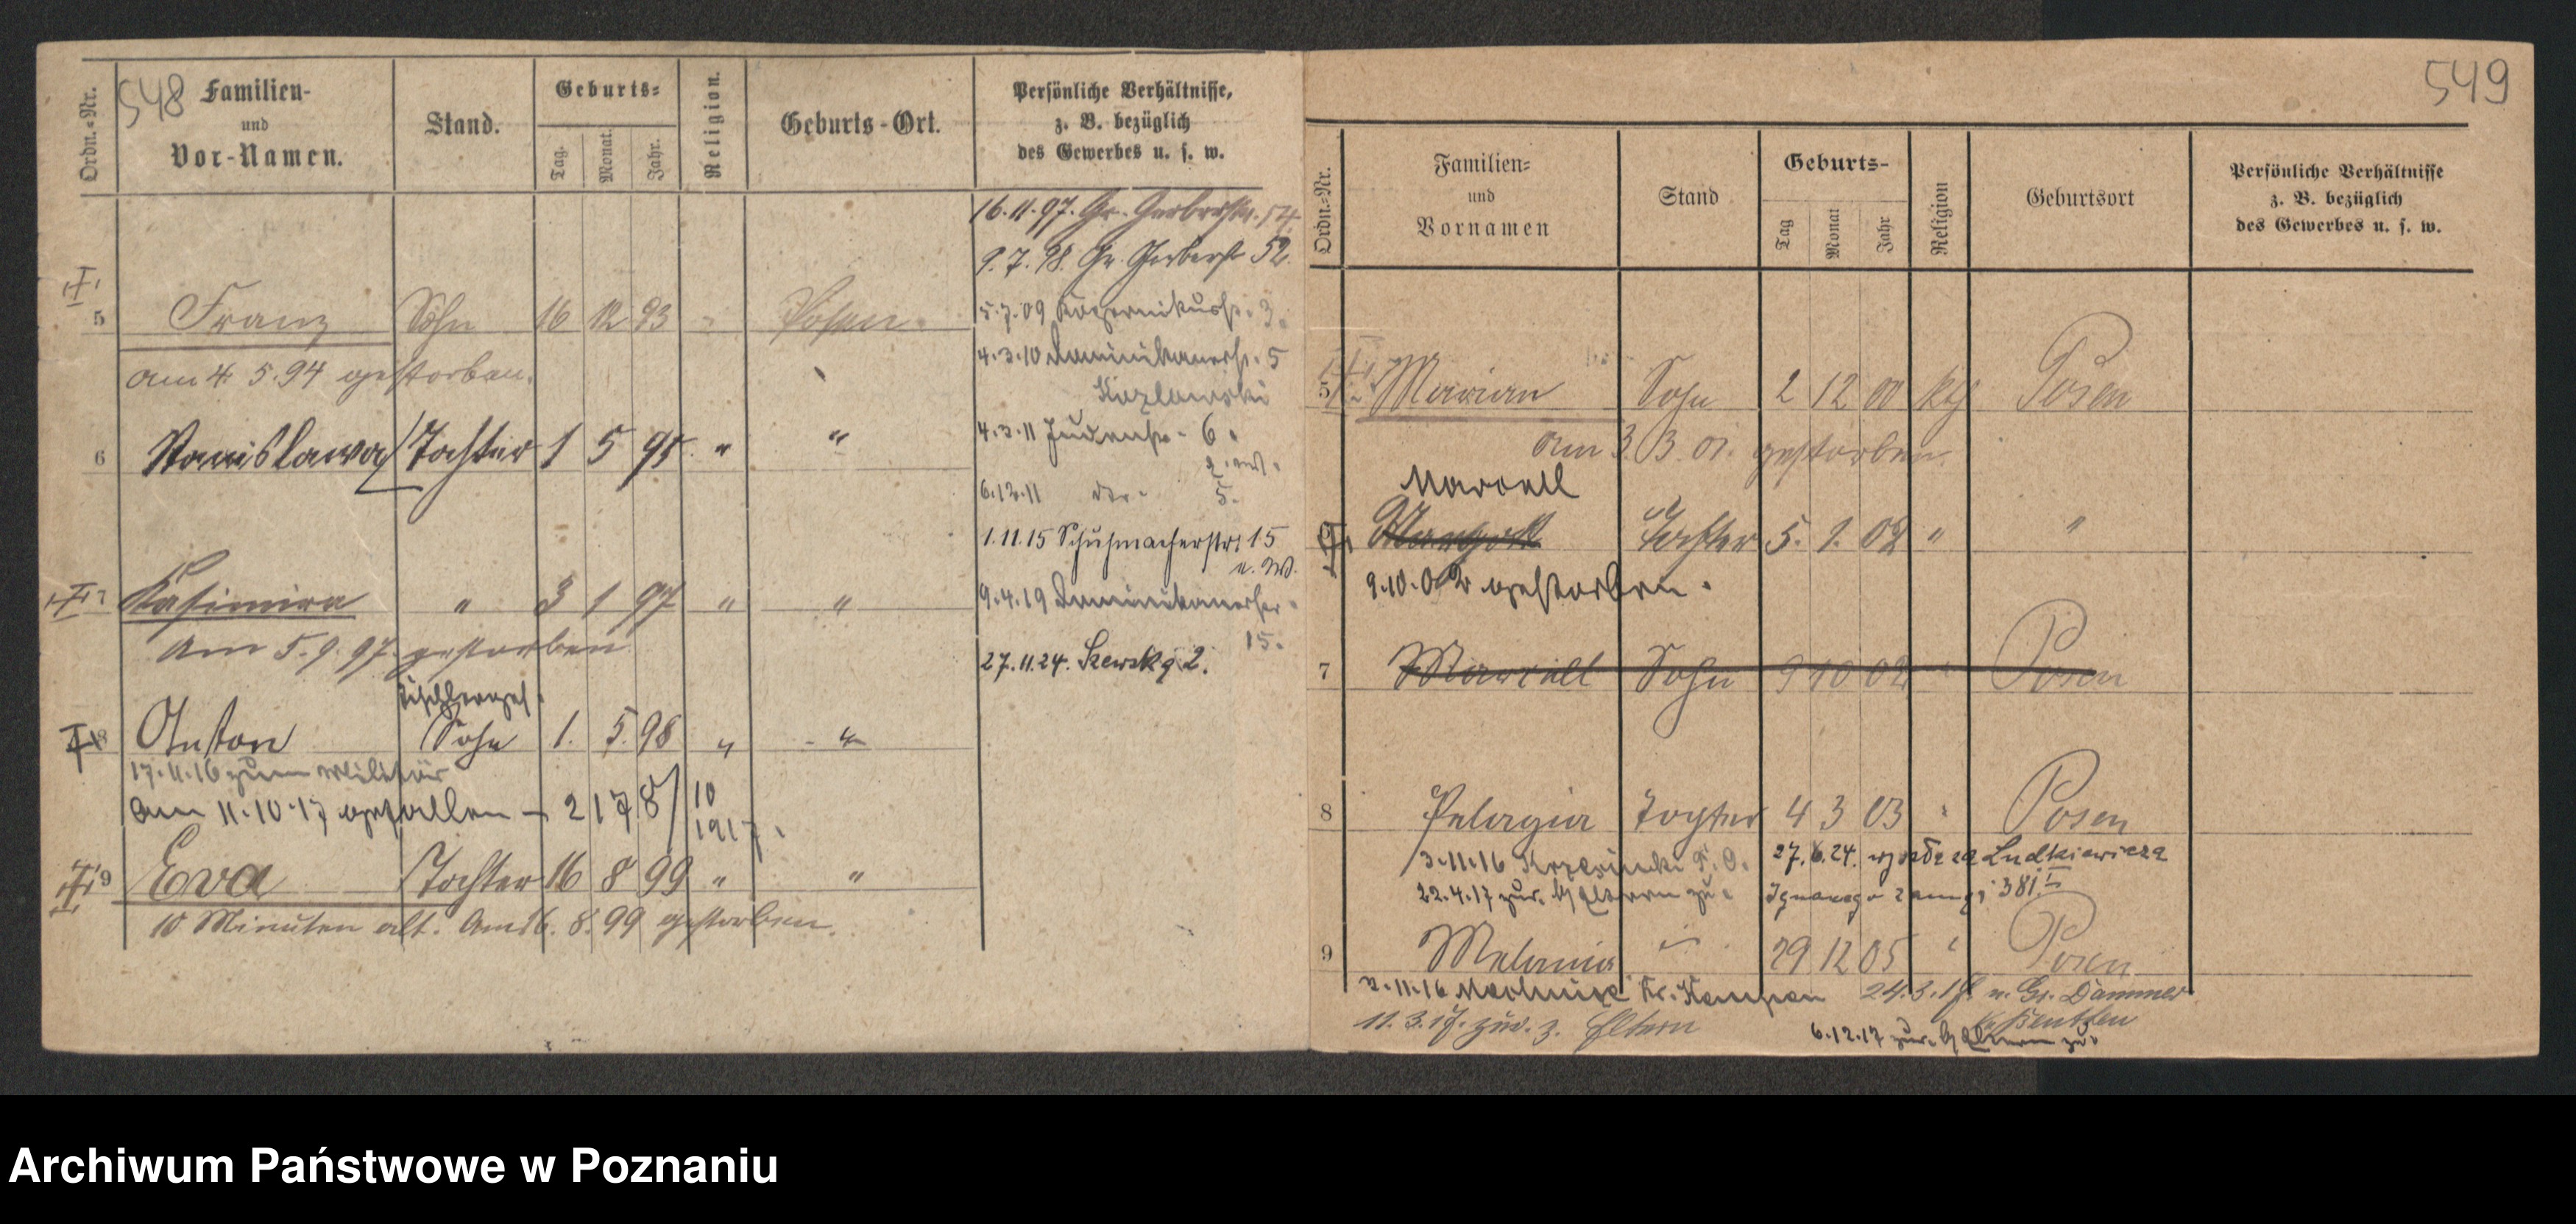 548
Ordn.-Nr. Familien- und Vor-Namen. Stand. Geburts- Tag. Monat. Jahr. Religion. Geburts-Ort. Persönliche Verhältnisse, z. B. bezüglich des Gewerbes u. s. w.
16.11.97. Gr. Gerberstr. 54
9.7.98. Gr. Gerberst 52.
5 Franz Sohn 16 12 93 Posen
5.7.09 Kopernikusstr. 3.
am 4. 5. 94 gestorben.
4.3.10 Dominikanerstr. 5
Kozlowski
6 Stanislawa Tochter 1 5 95 " "
4.3.11 Judenstr. 6
6.12.11 5.
1.11.15 Schuhmacherstr. 15
u. W.
7 Kasimira " 3 1 97 " "
9.4.19 Dominikanerstr.
15.
am 5. 9. 97. gestorben
27.11.24. Szewska 2.
Tischlerges.
8 Anton Sohn 1. 5. 98 " "
17.11.16 zum Militär
am 11.10.17 gefallen - 2178/10
1917.
9 Eva Tochter 16 8 99 " "
10 Minuten alt. Am 16. 8. 99 gestorben.
549
Ordn.-Nr. Familien- und Vornamen Stand Geburts- Tag Monat Jahr Religion Geburtsort Persönliche Verhältnisse z. B. bezüglich des Gewerbes u. s. w.
5 Marian Sohn 2 12 00 kth Posen
am 3. 3. 01. gestorben
Marcell
6 Tochter 5. 1. 02 " "
9.10.02 gestorben.
7 Marcell Sohn 9 10 02 " Posen
8 Pelagia Tochter 4 3 03 " Posen
3.11.16
27.6.24. wyszła za Ludkiewicza
22.4.17 zur. Eltern zu.
Ignacego 381
9 Melania " 29 12 05 " Posen
2.11.16 Kr. Kempen 24.3.17 n. Gr. Dammer
11.3.17. zur. z. Eltern
Kr. Bentschen
6.12.17 zur. Eltern zu.
Archiwum Państwowe w Poznaniu